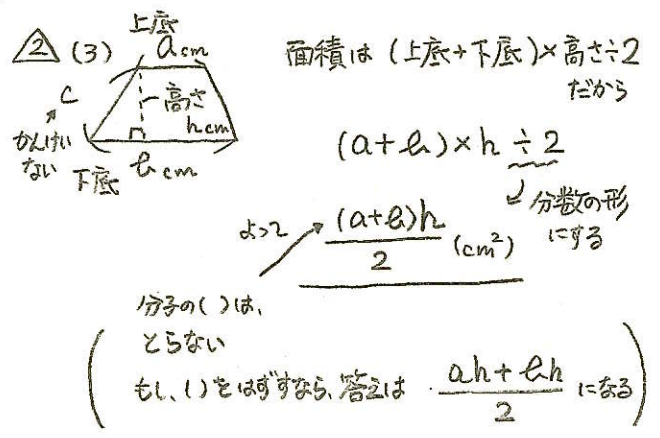 2 (3)
上底
a cm
高さ
h cm
c
かんけい
ない
下底 b cm
面積は (上底+下底)×高さ÷2
だから
(a+b)×h÷2
分数の形
にする
よって
(a+b)h
2
(cm²)
分子の( )は、
とらない
もし、( )をはずすなら、答えは
ah+bh
2
になる